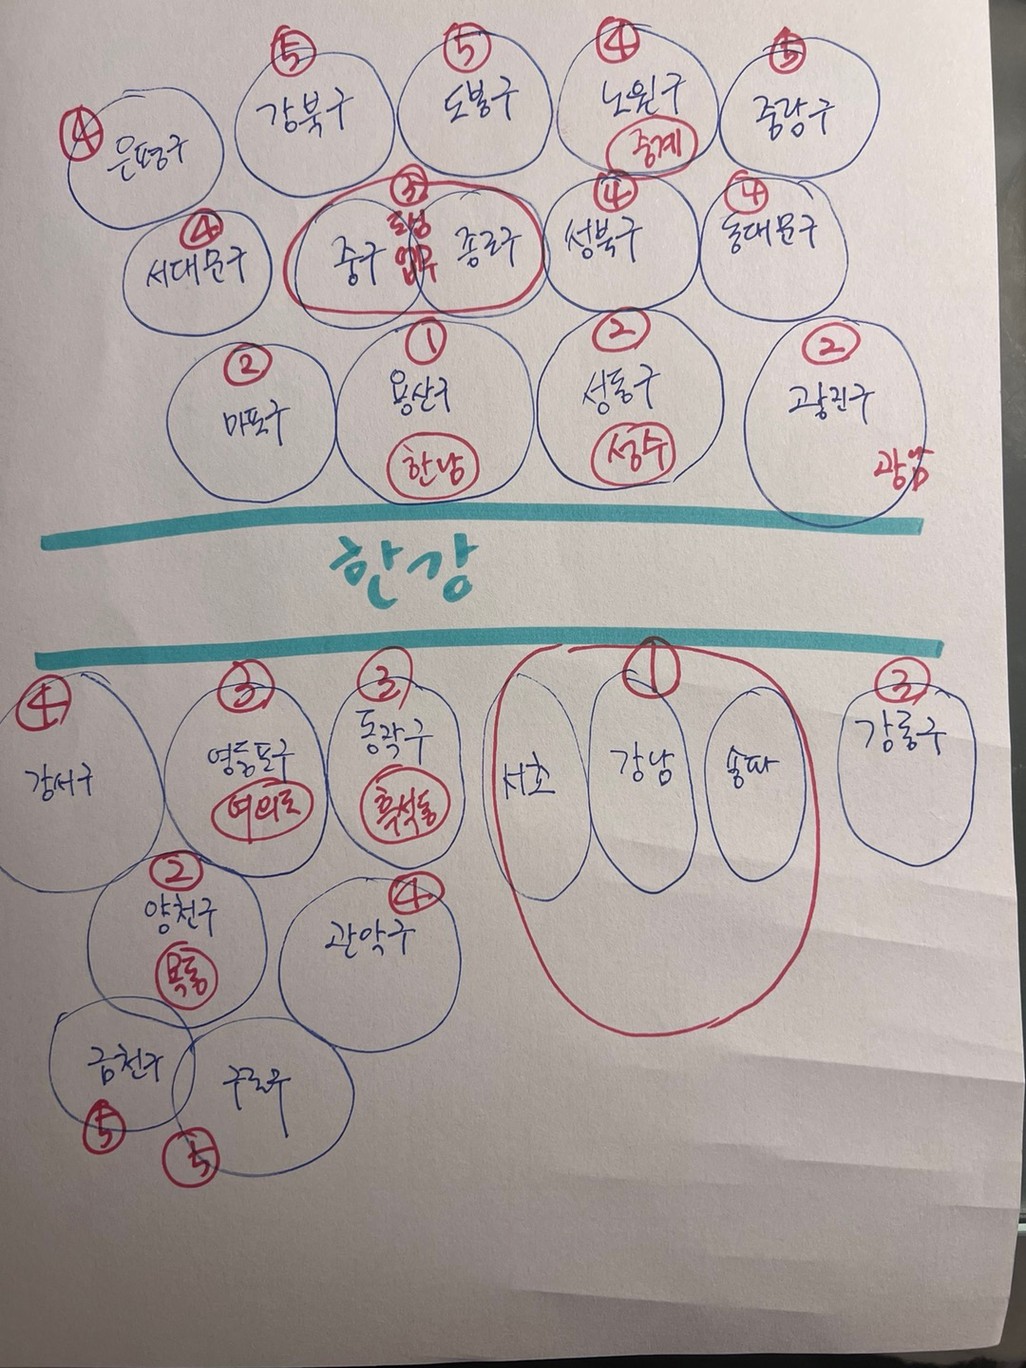 ⑤
강북구
⑤
도봉구
④
노원구
중계
⑤
중랑구
④
은평구
④
서대문구
③
중구
도심
업무
종로구
④
성북구
④
동대문구
②
마포구
①
용산구
한남
②
성동구
성수
②
광진구
광장
한강
④
강서구
③
영등포구
여의도
③
동작구
흑석동
①
서초
강남
송파
③
강동구
②
양천구
목동
④
관악구
금천구
⑤
구로구
⑤